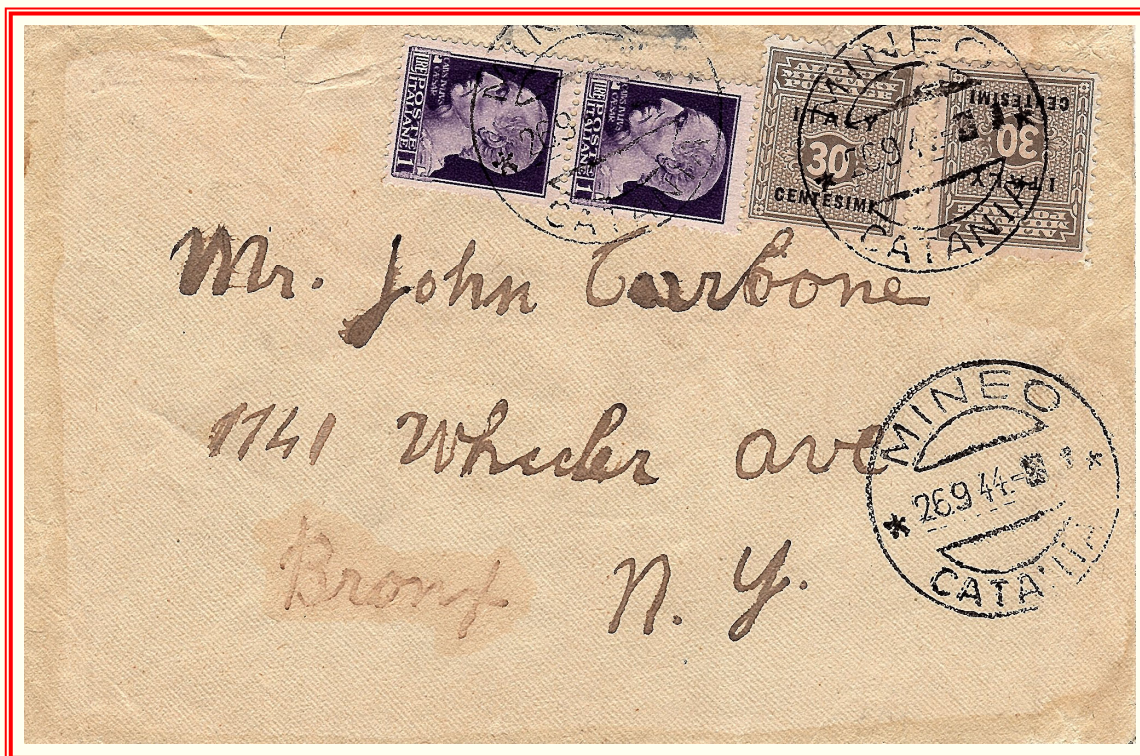 1 LIRE POSTE ITALIANE
1 LIRE POSTE ITALIANE
ITALY
30
CENTESIMI
ITALY
30
CENTESIMI
MINEO
26 9 44
CATANIA
Mr. John Carbone
1141 Wheeler ave
Bronx N. Y.
MINEO
26 9 44
CATANIA